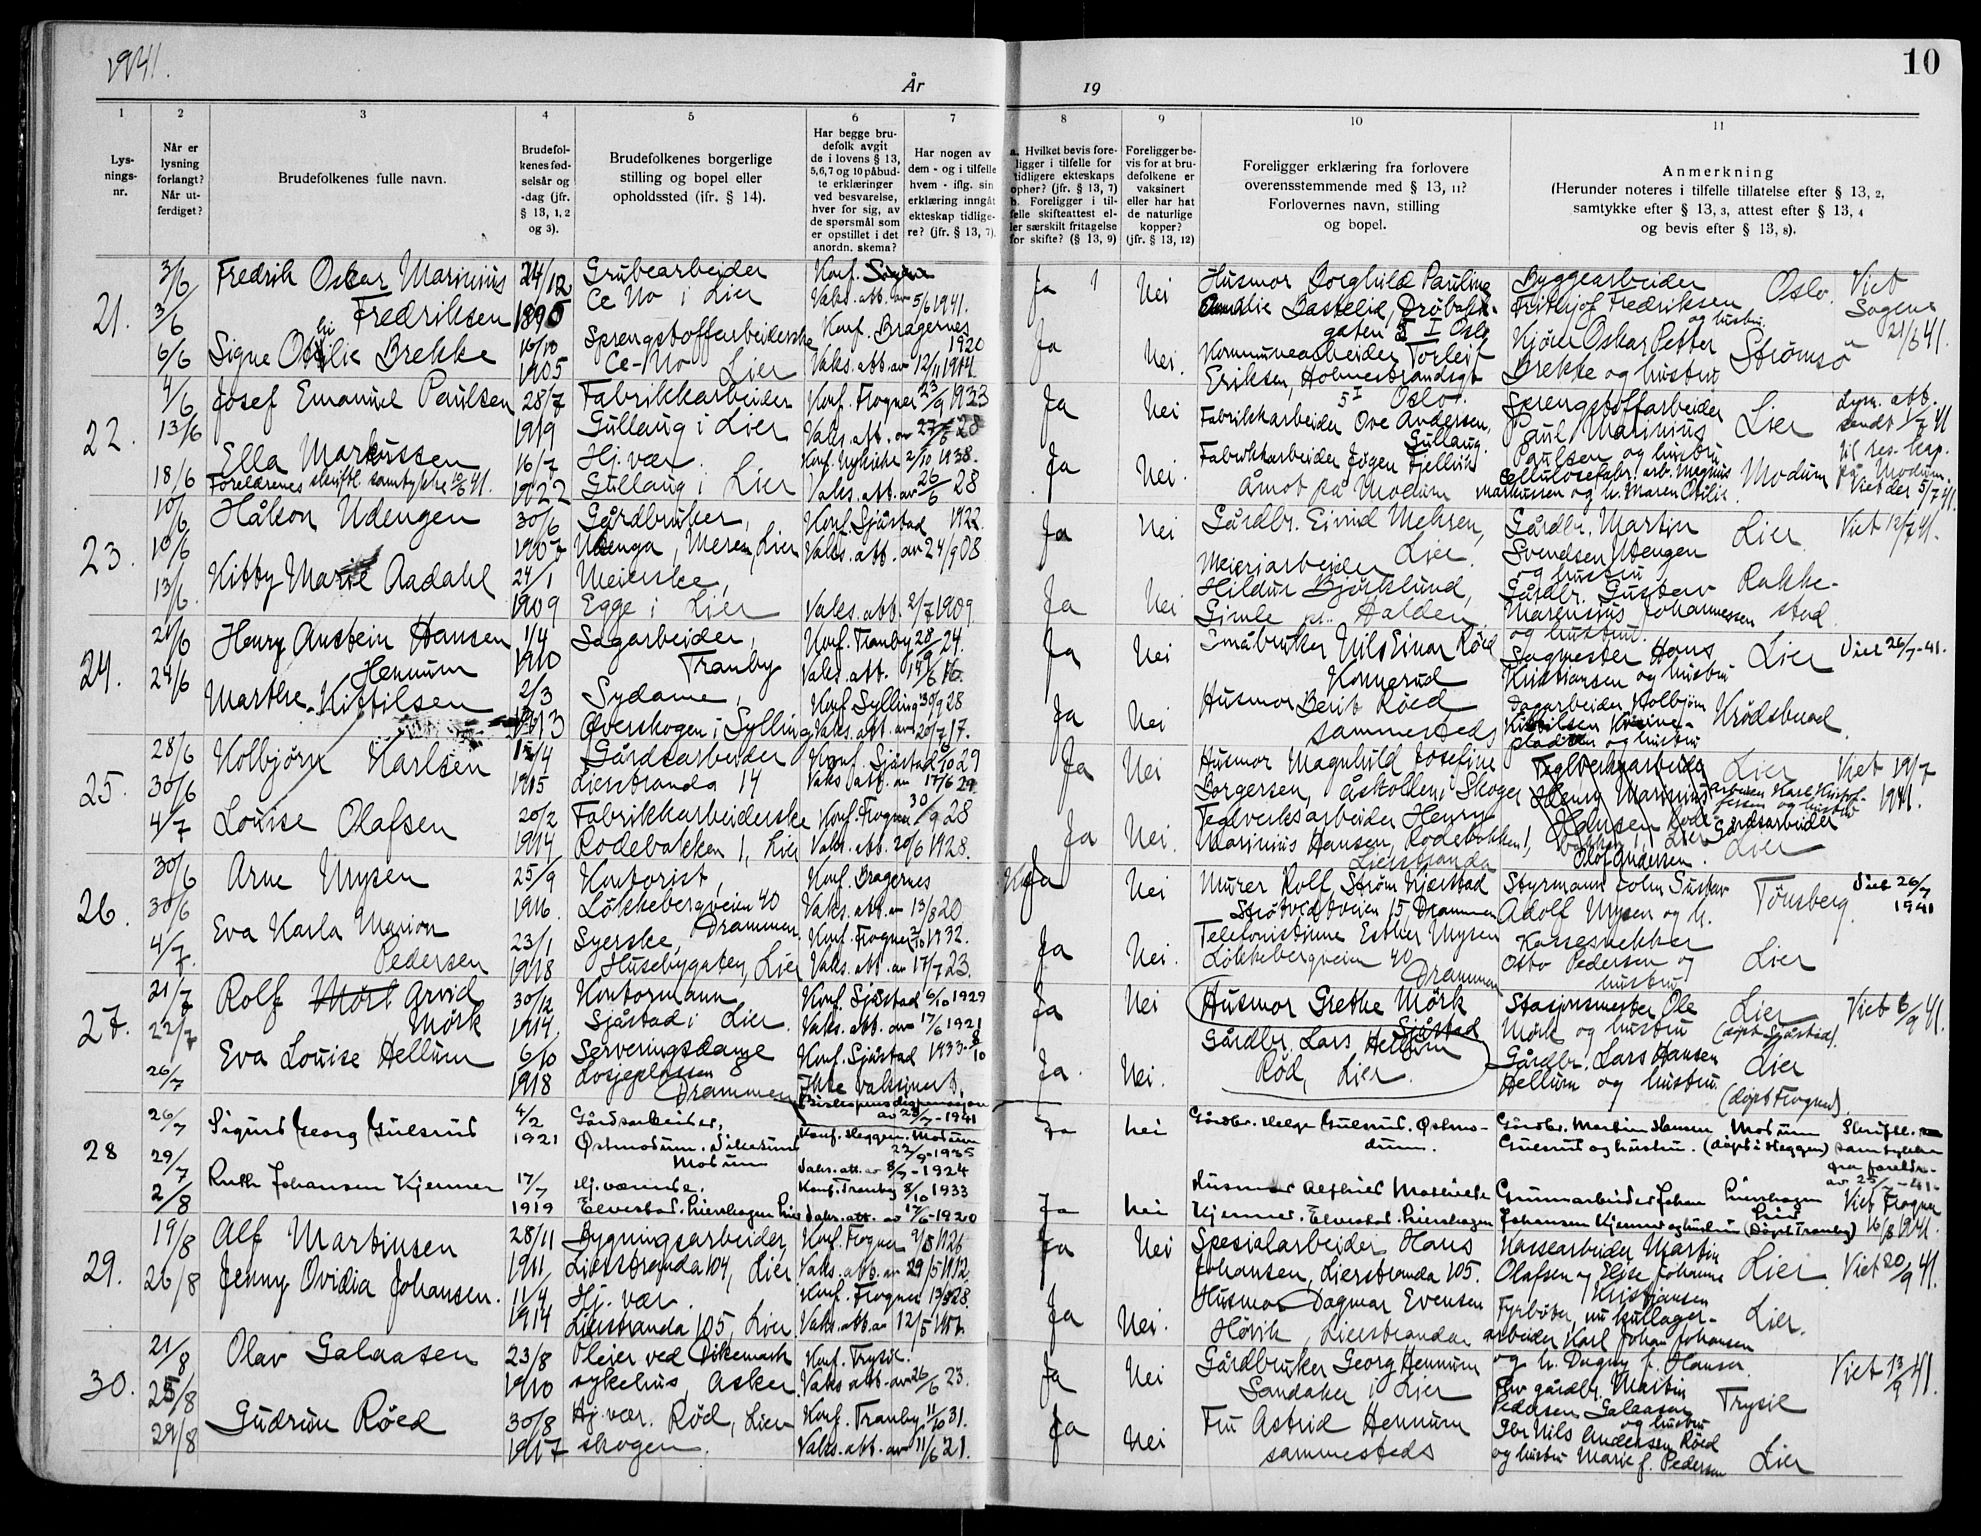 1941.
År 19
10
1 2 3 4 5 6 7 8 9 10 11
Lys-
nings-
nr.
Når er
lysning
forlangt?
Når ut-
ferdiget?
Brudefolkenes fulle navn.
Brudefol-
kenes fød-
selsår og
-dag (jfr.
§ 13, 1, 2
og 3).
Brudefolkenes borgerlige
stilling og bopel eller
opholdssted (jfr. § 14).
Har begge bru-
defolk avgit
de i lovens § 13,
5,6,7 og 10 påbud-
te erklæringer
ved besvarelse,
hver for sig, av
de spørsmål som
er opstillet i det
anordn. skema?
Har nogen av
dem - og i tilfelle
hvem - iflg. sin
erklæring inngåt
ekteskap tidlige-
re? (jfr. § 13, 7).
a. Hvilket bevis fore-
ligger i tilfelle for
tidligere ekteskaps
ophør? (jfr. § 13, 7)
b. Foreligger i til-
felle skifteattest el-
ler særskilt fritagelse
for skifte? (§ 13, 9)
Foreligger be-
vis for at bru-
defolkene er
vaksinert
eller har hat
de naturlige
kopper?
(jfr. § 13, 12)
Foreligger erklæring fra forlovere
overensstemmende med § 13, 11?
Forlovernes navn, stilling
og bopel.
Anmerkning
(Herunder noteres i tilfelle tillatelse efter § 13, 2,
samtykke efter § 13, 3, attest efter § 13, 4
og bevis efter § 13, 8).
21.
3/6
3/6
6/6
Fredrik Oskar Marinius
Fredriksen
24/12
1895
Grubearbeider
Ce No i Lier
Konf. Sogne
Vaks. att. av 5/6 1941.
Ja Nei
Husmor Borghild Pauline
Bastelid, Drøbak-
gaten 5 I Oslo
Byggearbeider
Frithjof Fredriksen
og hustru.
Oslo.
Viet
Sogne
21/6 41.
Signe Otilie Brekke
16/10
1905
Sprengstoffarbeiderske
Ce-No Lier
Konf. Bragernes
1920
Vaks. att. av 12/11 1914.
Ja Nei.
Kommunearbeider Torleif
Eriksen, Holmestrandsgt
5 I Oslo.
Kjører Oskar Petter
Brekke og hustru
Strømsø
22.
4/6
13/6
18/6
Josef Emanuel Paulsen
28/7
1919
Fabrikkarbeider
Gullaug i Lier
Konf. Frogner 23/9 1933
Vaks. att. av 27/6 28
Ja Nei
Fabrikkarbeider Ove Andersen,
Gullaug.
Sprengstoffarbeider
Paul Marinius
Paulsen og hustru
Lier
Lysn. att.
sendt 1/7 41
til res. kap.
på Modum.
Viet der 5/7 41.
Ella Markussen
Forelærenes skriftl. samtykke 10/6 41.
16/7
1922
Hj. vær.
Gullaug i Lier
Konf. Nykirke 2/10 1938.
Vaks. att. av 26/6 28
Ja Nei.
Fabrikkarbeider Jøgen Fjellvik
Åmot på Modum
Cellulosefabr. arb. Magnus
Markussen og h. Maren Otilie.
Modum
23.
10/6
10/6
13/6
Håkon Udengen
30/6
1907
Gårdbruker,
Udenga, Meren, Lier
Konf. Sjåstad 1922.
Vaks. att. av 24/9 08
Ja Nei
Gårdbr. Eivind Mehsen,
Lier.
Gårdbr. Martin
Svendsen Utengen
og hustru
Lier
Viet 12/7 41.
Kitty Marie Aadahl
24/1
1909
Meierske,
Egge i Lier
Vaks. att. 2/7 1909
Ja Nei
Meieriarbeider
Hildur Bjørklund,
Gimle pr. Halden.
Gårdbr. Gustav
Marensius Johannessen
og hustru.
Rakke-
stad.
24.
21/6
24/6
Henry Anstein Hansen
Hennum
1/4
1910
Sagarbeider,
Tranby
Konf. Tranby 28/9 24.
Vaks. att. 14/6 16.
Ja Nei
Småbruker Nils Einar Röed
Konnerud
Sagmester Hans
Kristiansen og hustru
Lier
Viet 26/7 - 41.
Marthe Kittilsen
2/3
1913
Sydame,
Øverskogen i Sylling
Konf. Sylling 30/9 28
Vaks. att. av 20/6 17.
Ja Nei
Husmor Berit Röed
sammesteds
Dagarbeider Kolbjørn
og hustru
Krødsherad.
25.
28/6
30/6
4/7
Kolbjørn Karlsen
12/4
1915
Gårdsarbeider
Lierstranda 14
Konf. Sjåstad 29
Vaks. att. av 17/6 29
Ja Nei
Husmor Magnhild Josefine
Borgersen, Åskollen, Skoger
Teglverksarbeider
Henry Marinius
Hansen, Rode-
bakken 1, Lier
Lier
Viet 19/7
1941.
Louise Olafsen
20/2
1914
Fabrikkarbeiderske
Rodebakken 1, Lier
Konf. Frogner 30/9 28
Vaks. att. 20/6 1928.
Ja Nei.
Teglverksarbeider Henry
Marinius Hansen, Rodebakken 1,
Lierstranda
Gårdsarbeider
Olof Andersen.
Lier
26.
30/6
30/6
4/7.
Arne Mysen
25/9
1916.
Kontorist,
Løkkebergveien 40
Drammen.
Konf. Bragernes
Vaks. att. av 13/8 20.
Ja Nei
Murer Rolf Strøm Kjærstad
Strøtvedtveien 15, Drammen
Styrmann John Gustav
Adolf Mysen og h.
Tønsberg.
Viet 26/7
1941
Eva Karla Marion
Pedersen
23/1
1918
Syerske,
Husebygaten, Lier
Konf. Frogner 2/10 1932.
Vaks. att. av 17/7 23.
Ja Nei.
Telefonistinne Esther Mysen
Løkkebergveien 40
Drammen
Kassesnekker
Osvo Pedersen og
hustru
Lier
27.
21/7
22/7
26/7
Rolf Mørk Arvid
Mørk
30/12
1914.
Kontormann
Sjåstad i Lier.
Konf. Sjåstad 6/10 1929
Vaks. att. av 17/6 1921
Ja Nei
Husmor Grethe Mörk
Sjåstad
Stasjonsmester Ole
Mørk og hustru
Lier
(døpt Sjåstad).
Viet 6/9 41.
Eva Louise Hellum
6/10
1918
Serveringsdame
Losjeplassen
Drammen
Konf. Sjåstad 1933 - 8/10
Ikke vaksinert.
Bispens dispensasjon
av 23/7 - 1941
Ja. Nei.
Gårdbr. Lars Hellum
Röd, Lier.
Gårdbr. Lars Hansen
Hellum og hustru
Lier
(døpt Frogner).
28
26/7
29/7
2/8
Sigurd Georg Gulsrud
4/2
1921
Gårdsarbeider,
Østmodum. Vikesund
Modum
Konf. Heggen. Modum
22/9 - 1935
Vaks. att. av 8/7 - 1924
Ja Nei
Gårdbr. Helge Gulsrud. Østmo-
dum.
Gårdbr. Martin Hansen
Gulsrud og hustru. (døpt i Heggen)
Modum
Skriftl.
samtykke
fra foreldr.
av 25/7 - 41 -
Viet Frogner
16/8 1941.
Ruth Johansen Kjenner
17/7
1919
Hj. værende.
Elvestad. Lierskogen Lier
Konf. Tranby 8/10 1933
Vaks. att. av 17/6 - 1920
Ja Nei
Husmor Mathilde
Kjenner. Elvestad. Lierskogen
Grunnarbeider Johan
Johansen Kjenner og hustru (Døpt Tranby)
Lierskogen
Lier
29.
19/8
26/8
Alf Martinsen
28/11
1911
Bygningsarbeider
Lierstranda 104, Lier
Konf. Frogner 1926
Vaks. att. av 29/5 1912.
Ja Nei
Spesialarbeider Hans
Johansen, Lierstranda 105.
Kassearbeider Martin
Olafsen og Elise Johanne
Kristiansen
Lier
Viet 20/9 41.
Jenny Ovidia Johansen.
11/4
1914
Hj. vær.
Lierstranda 105, Lier
Konf. Frogner 28.
Vaks. att. av 12/5
Ja Nei.
Husmor Dagmar Evensen
Høvik, Lierstranda
Fyrbøter, nu kullager-
arbeider Karl Johan Johansen
og h. Dagny f. Hansen
Lier.
30.
21/8
25/8
29/8
Olav Galaasen
23/8
1910
Pleier ved Dikemark
sykehus, Asker.
Konf. Trysil.
Vaks. att. av 26/6 23.
Ja Nei
Gårdbruker Georg Hennum
Sandaker i Lier
gårdbr. Martin
Pedersen Galaasen
og hustru
Trysil
Viet 13/9 41.
Gudrun Röed
30/8
1917
Hj. vær. Röd, Lier-
skogen.
Konf. Tranby 11/10 31.
Vaks. att. av 11/6 21.
Ja Nei
Fru Astrid Hennum
sammesteds
Nils Andersen Röed
og hustru Marie f. Pedersen
Lier